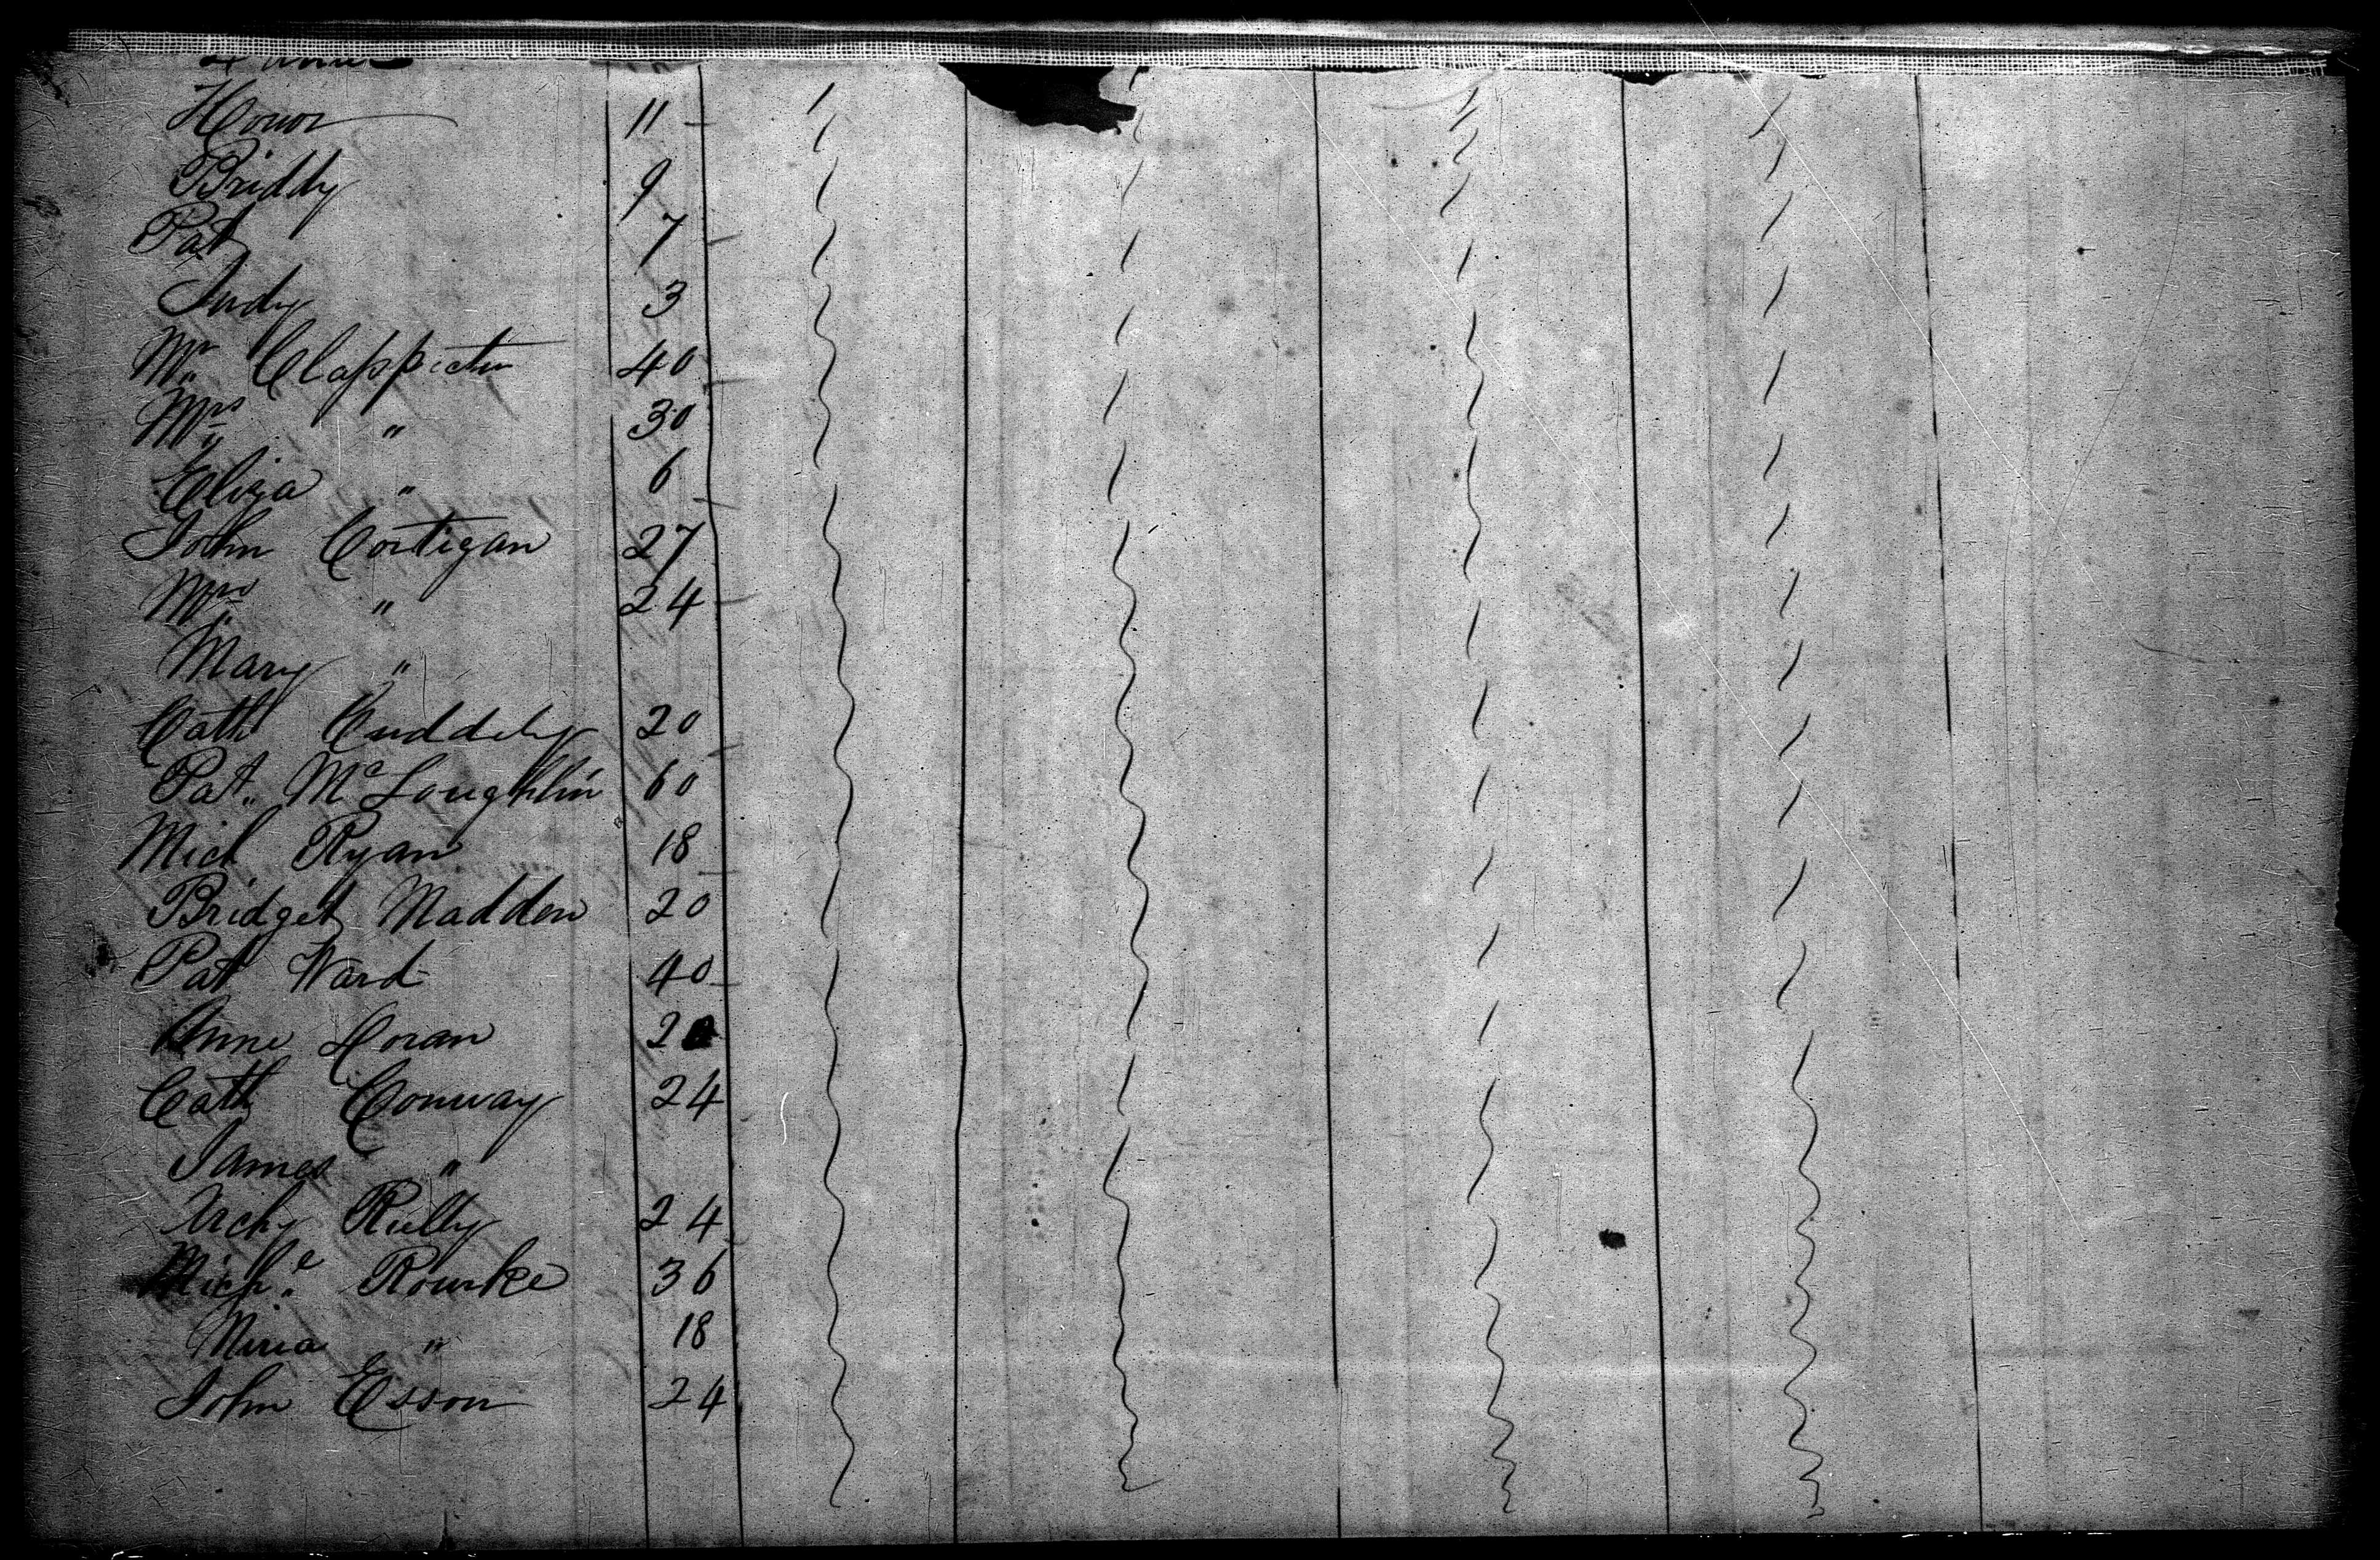 Honor 11
Briddy 9
Pat 7
Judy 3
Mr. Clappictn 40
Mrs. " 30
Eliza " 6
John Costigan 27
Mrs " 24
Mary "
Cath Cuddehy 20
Pat. McLoughlin 60
Mich Ryan 18
Bridget Madden 20
Pat Ward 40
Anne Horan
Cath Conway 24
James "
Archy Rielly 24
Miche. Rourke 36
18
John Esson 24